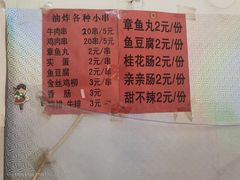 油炸各种小串
牛肉串 20串/5元
鸡肉串 20串/5元
章鱼丸 2元/串
实蛋 2元/串
鱼豆腐 2元/串
金丝鸡柳 3元/串
香肠 3元
牛排 3元
章鱼丸2元/份
鱼豆腐2元/份
桂花肠2元/份
亲亲肠2元/份
甜不辣2元/份